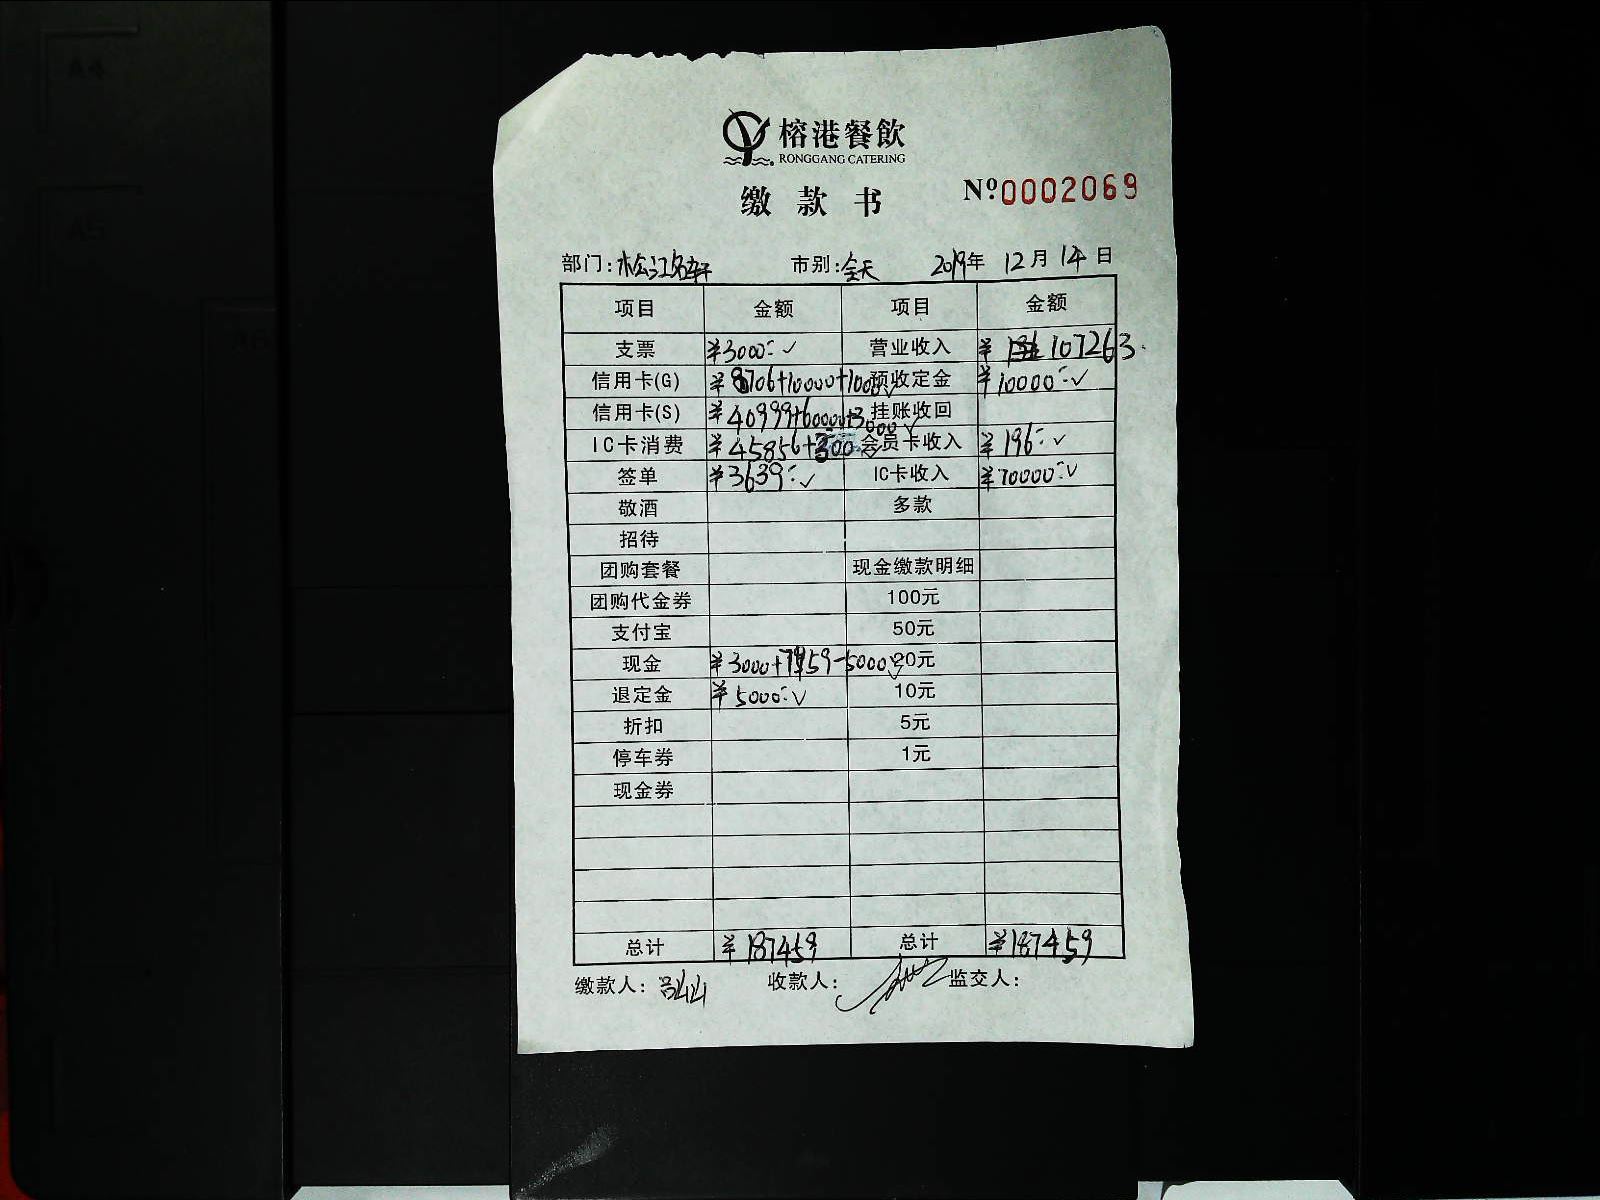 榕港餐飲
RONGGANG CATERING
缴款书
Nº0002069
部门:松江名轩 市别:全天 2019年 12月 14日
项目 金额 项目 金额
支票 ¥3000- 营业收入 ¥ 107263.
信用卡(G) ¥8706+10000+1000 预收定金 ¥10000-
信用卡(S) ¥40999+60000+3000 挂账收回
IC卡消费 ¥45856+300 会员卡收入 ¥196-
签单 ¥3639- IC卡收入 ¥70000-
敬酒 多款
招待
团购套餐 现金缴款明细
团购代金券 100元
支付宝 50元
现金 ¥3000+7959-5000 20元
退定金 ¥5000- 10元
折扣 5元
停车券 1元
现金券
总计 ¥187459 总计 ¥187459
缴款人: 收款人: 监交人:
A4
A5
A6